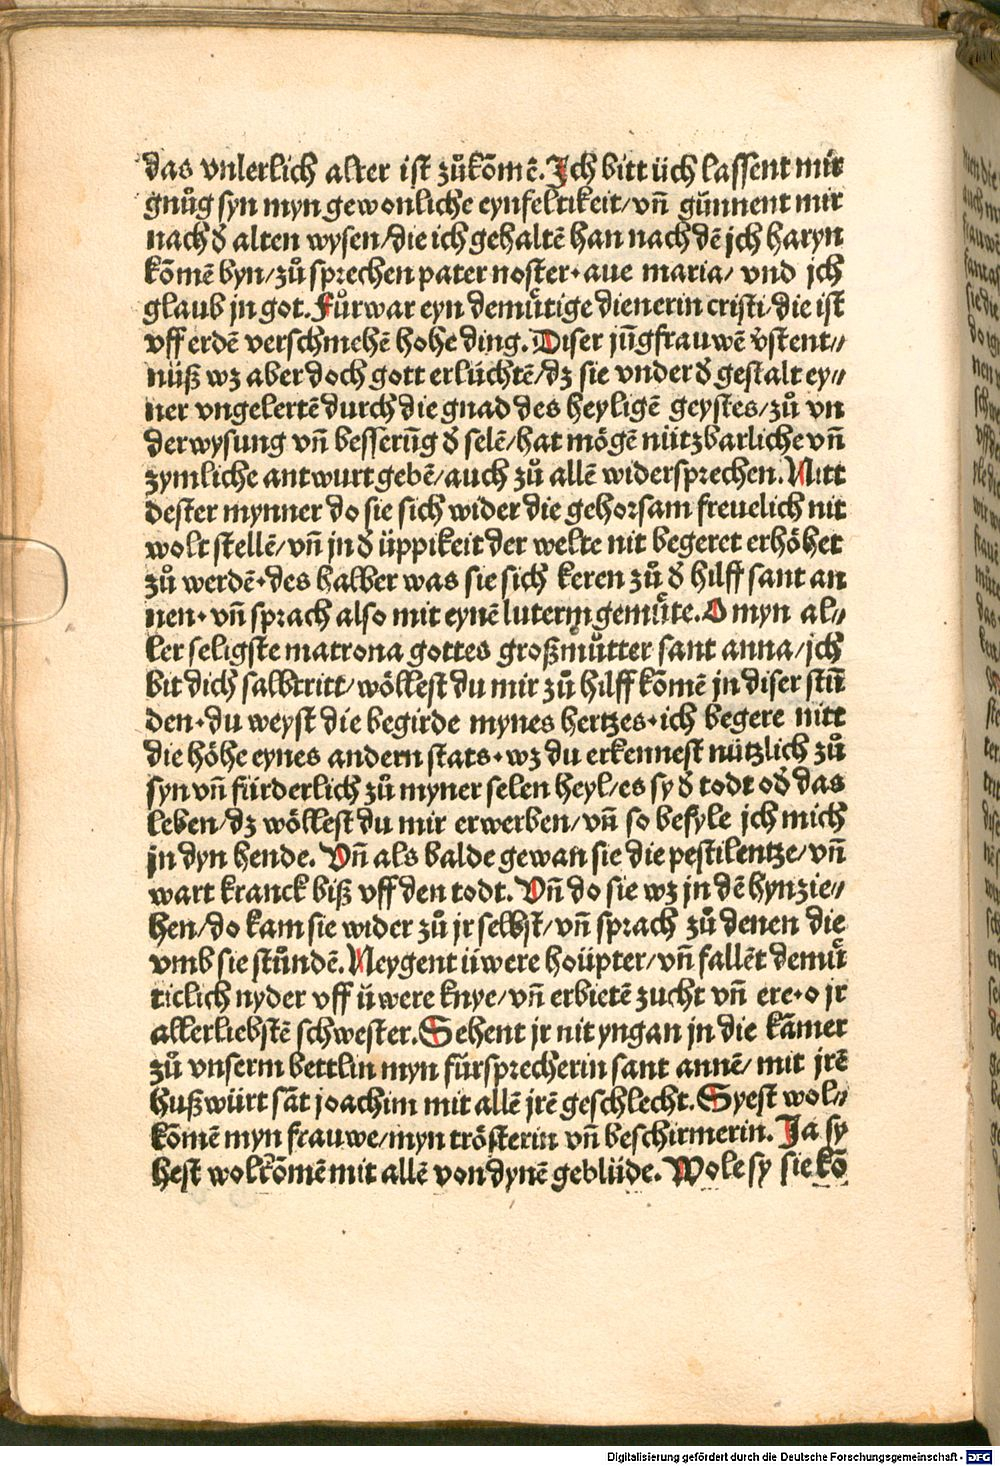 das vnlerlich alter ist zůkōmē. Jch bitt üch lassent mir
gnůg syn myn gewonliche eynfeltikeit/vn̄ günnent mir
nach d̕ alten wysen/die ich gehaltē han nach dē jch haryn
kōmē byn/zů sprechen pater noster· aue maria/ vnd jch
glaub jn got. Fůrwar eyn demůtige dienerin cristi/die ist
vff erdē verschmehē hohe ding. Diser jūgfrauwē v̕stent⸗
nüß wz aber doch gott erlüchtē/dz sie vnder d̕ gestalt ey⸗
ner vngelertē durch die gnad des heyligē geystes/zů vn
derwysung vn̄ besserūg d̕ selē/hat mögē nützbarliche vn̄
zymliche antwurt gebē/auch zů allē widersprechen. Nitt
dester mynner do sie sich wider die gehorsam freuelich nit
wolt stellē/vn̄ jn d̕ üppikeit der welte nit begeret erhöhet
zů werdē·des halber was sie sich keren zů d̕ hilff sant an
nen·vn̄ sprach also mit eynē luterm gemůte. O myn al⸗
ler seligste matrona gottes großmůtter sant anna/jch
bit dich salbtritt/wöllest du mir zů hilff kōmē jn diser stū
den·du weyst die begirde mynes hertzes·ich begere nitt
die höhe eynes andern stats·wz du erkennest nützlich zů
syn vn̄ fürderlich zů myner selen heyl/es sy d̕ todt od̕ das
leben/dz wöllest du mir erwerben/vn̄ so befyle jch mich
jn dyn hende. Vn̄ als balde gewan sie die pestilentze/vn̄
wart kranck biß vff den todt. Vn̄ do sie wz jn dē hynzie⸗
hen/do kam sie wider zů jr selbst/vn̄ sprach zů denen die
vmb sie stůndē. Neygent üwere hoüpter/vn̄ fallēt demů
ticlich nyder vff üwere knye/vn̄ erbietē zucht vn̄ ere·o jr
allerliebstē schwester. Sehent jr nit yngan jn die kāmer
zů vnserm bettlin myn fürsprecherin sant annē/ mit jrē
hußwürt sāt joachim mit allē jrē geschlecht. Syest wol⸗
kōmē myn frauwe/myn trösterin vn̄ beschirmerin. Ja sy
hest wolkōmē mit allē von dynē geblüde. Wole sy sie kō
Digitalisierung gefördert durch die Deutsche Forschungsgemeinschaft - DFG